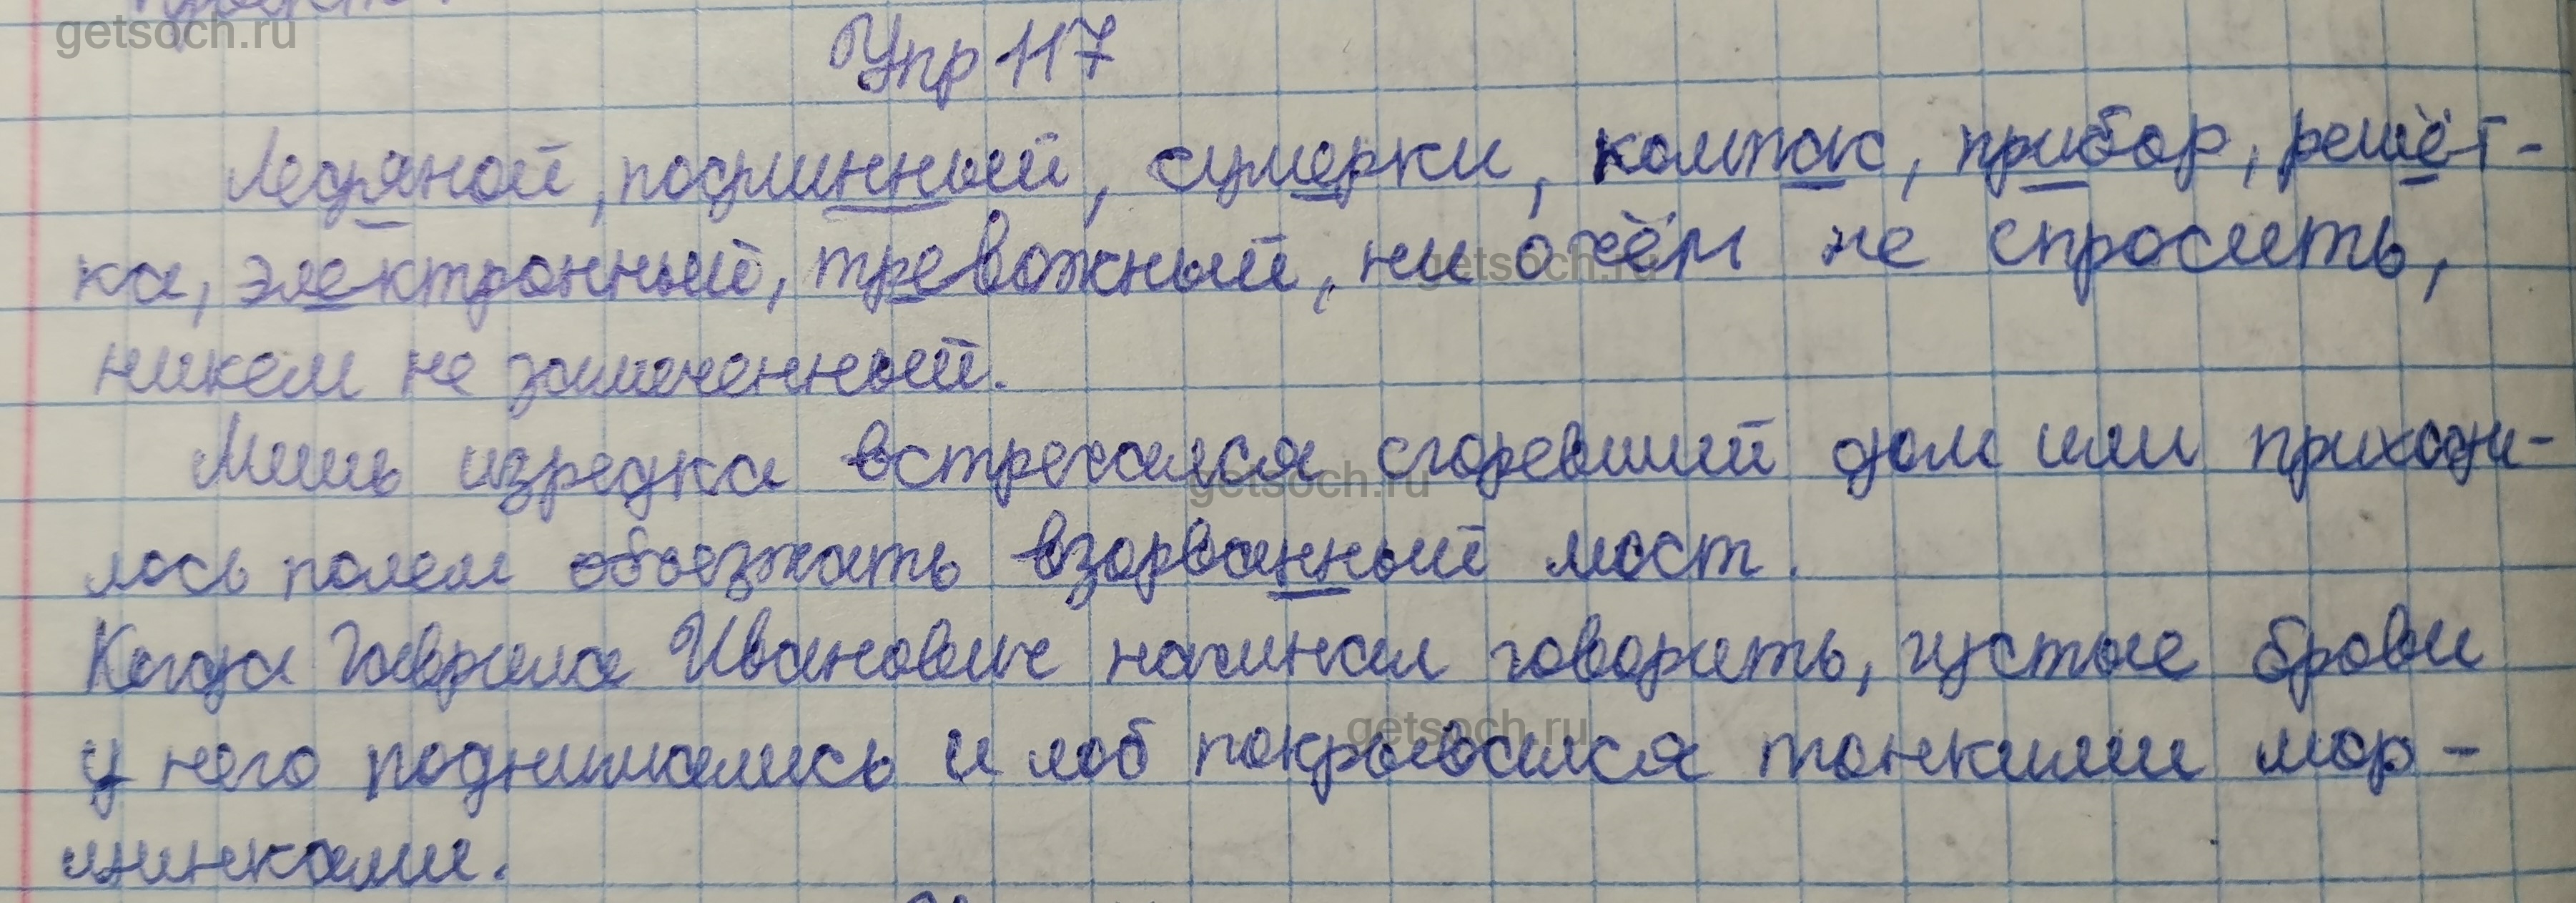 getsoch.ru
Упр 117
Ледяной, подлинный, сумерки, компас, прибор, решёт-
ка, электронный, тревожный, ни о чём не спросить,
getsoch.ru
никем не замеченный.
Лишь изредка встречался сгоревший дом или приходи-
getsoch.ru
лось полем объезжать взорванный мост.
Когда Гаврила Иванович начинал говорить, густые брови
getsoch.ru
у него поднимались и лоб покрывался тонкими мор-
щинками.